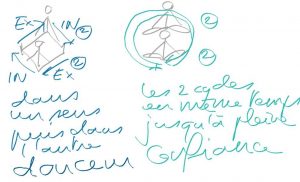 Ex IN 2
IN Ex 2
dans
un sens
puis dans
l'autre
douceur
2
2
les 2 cycles
en même temps
jusqu'à pleine
Confiance